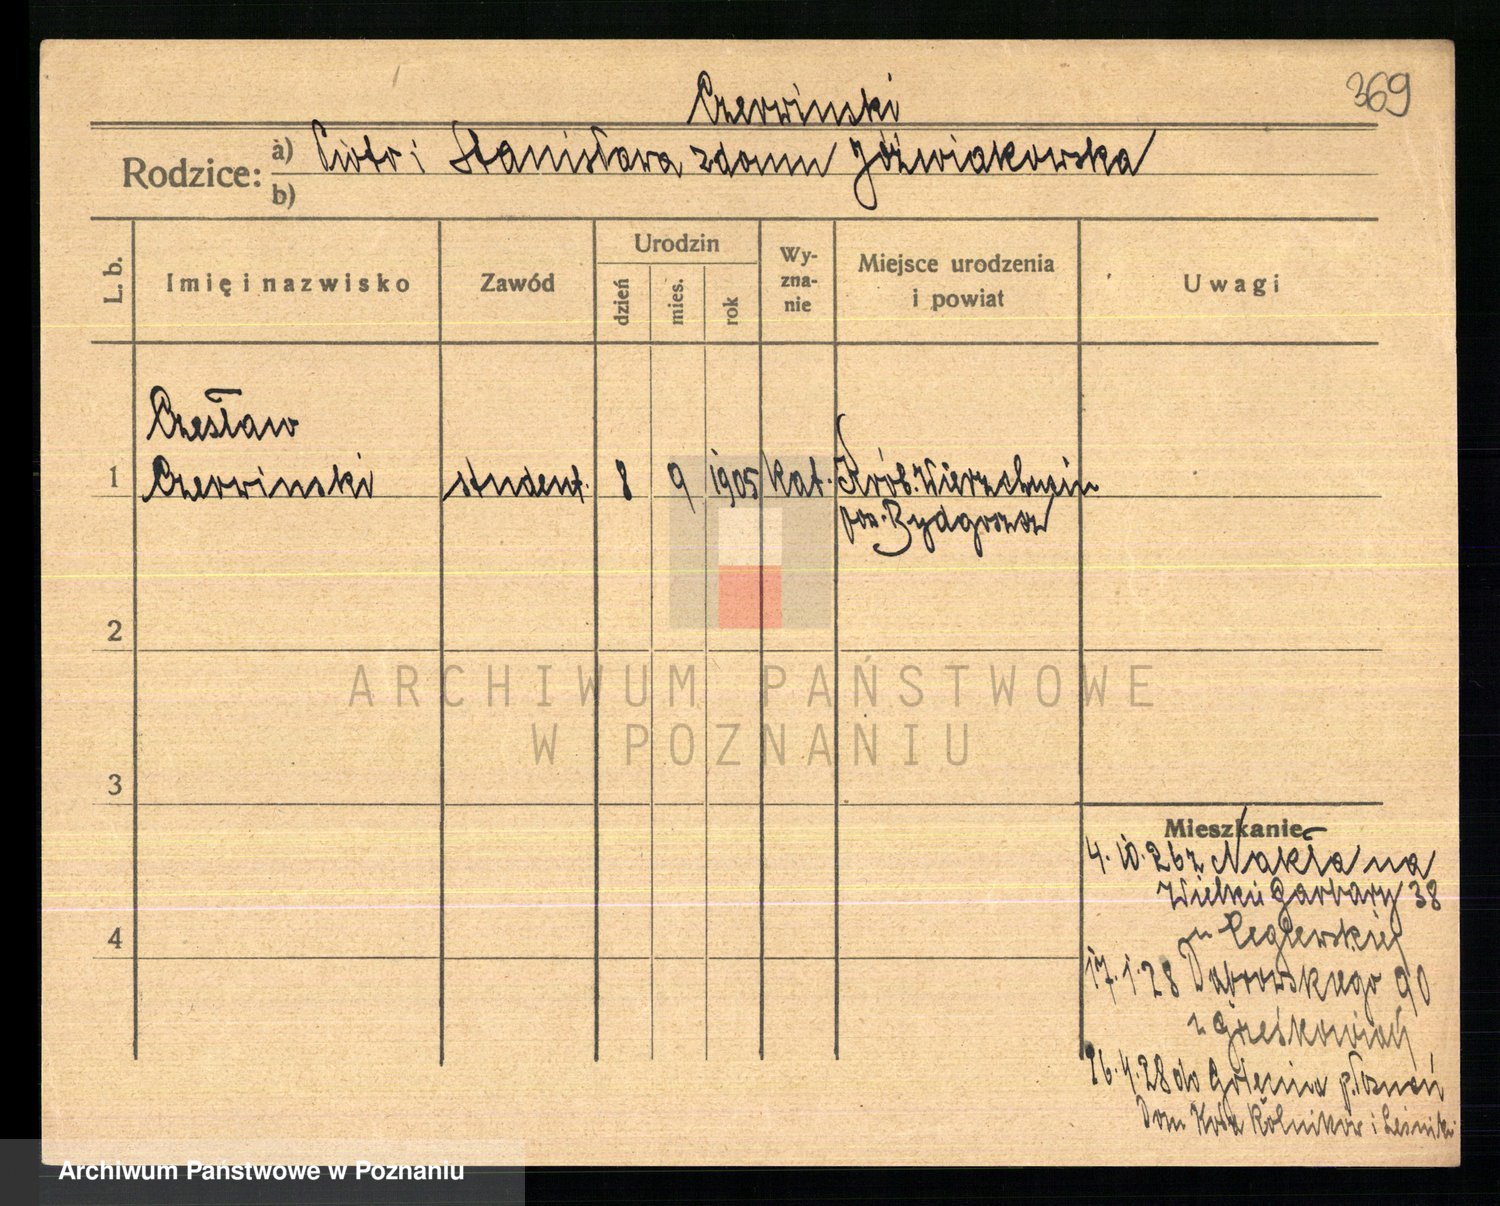 369
Czerwinski
Rodzice: a) Piotr i Stanisława z domu Jóźwiakowska
b)
L. b.
Imię i nazwisko
Zawód
Urodzin
dzień
mies.
rok
Wy-
zna-
nie
Miejsce urodzenia
i powiat
Uwagi
Czesław
1 Czerwinski student. 8 9 1905 kat. Król. Wierzchucin
pow. Bydgoszcz
2
3
4
ARCHIWUM PAŃSTWOWE
W POZNANIU
Mieszkanie
4.10.26 z Nakła na
Wielkie Garbary 38
u Ceglewskiej
17.1.28 Dąbrowskiego 90
16.4.28 do Golęcina p. Poznań
Dom Koła Rolników i Leśnik
Archiwum Państwowe w Poznaniu